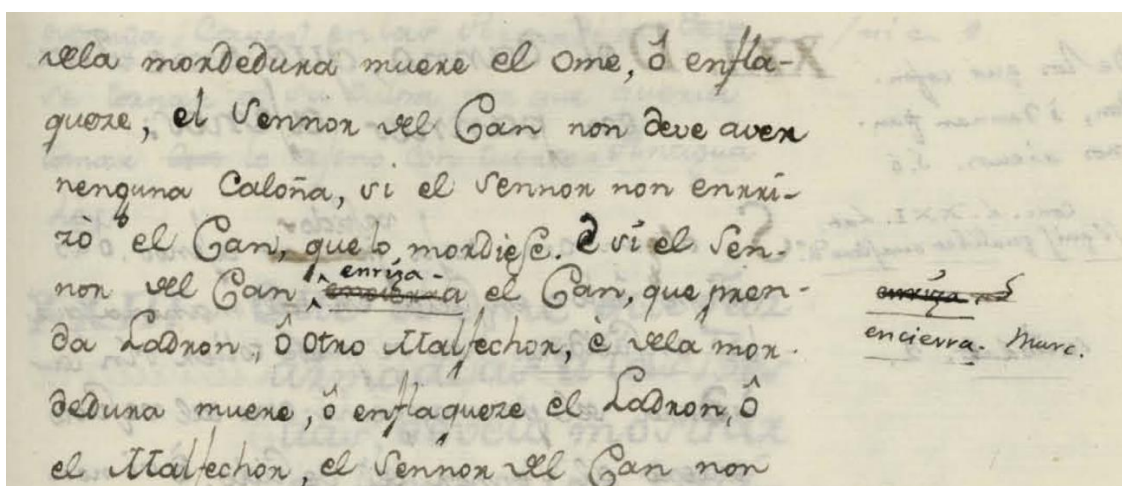 della mordedura muere el ome, ô enfla-
queze, el Sennor del Can non deve aver
nenguna Caloña, si el Sennor non enrri-
zò el Can, que lo mordiese. E si el Sen-
nor del Can enriza el Can, que pren-
da Ladron, ô otro Malfechor, è della mor-
dedura muere, ô enflaqueze el Ladron, ô
el Malfechor, el Sennor del Can non
encierra. Murc.